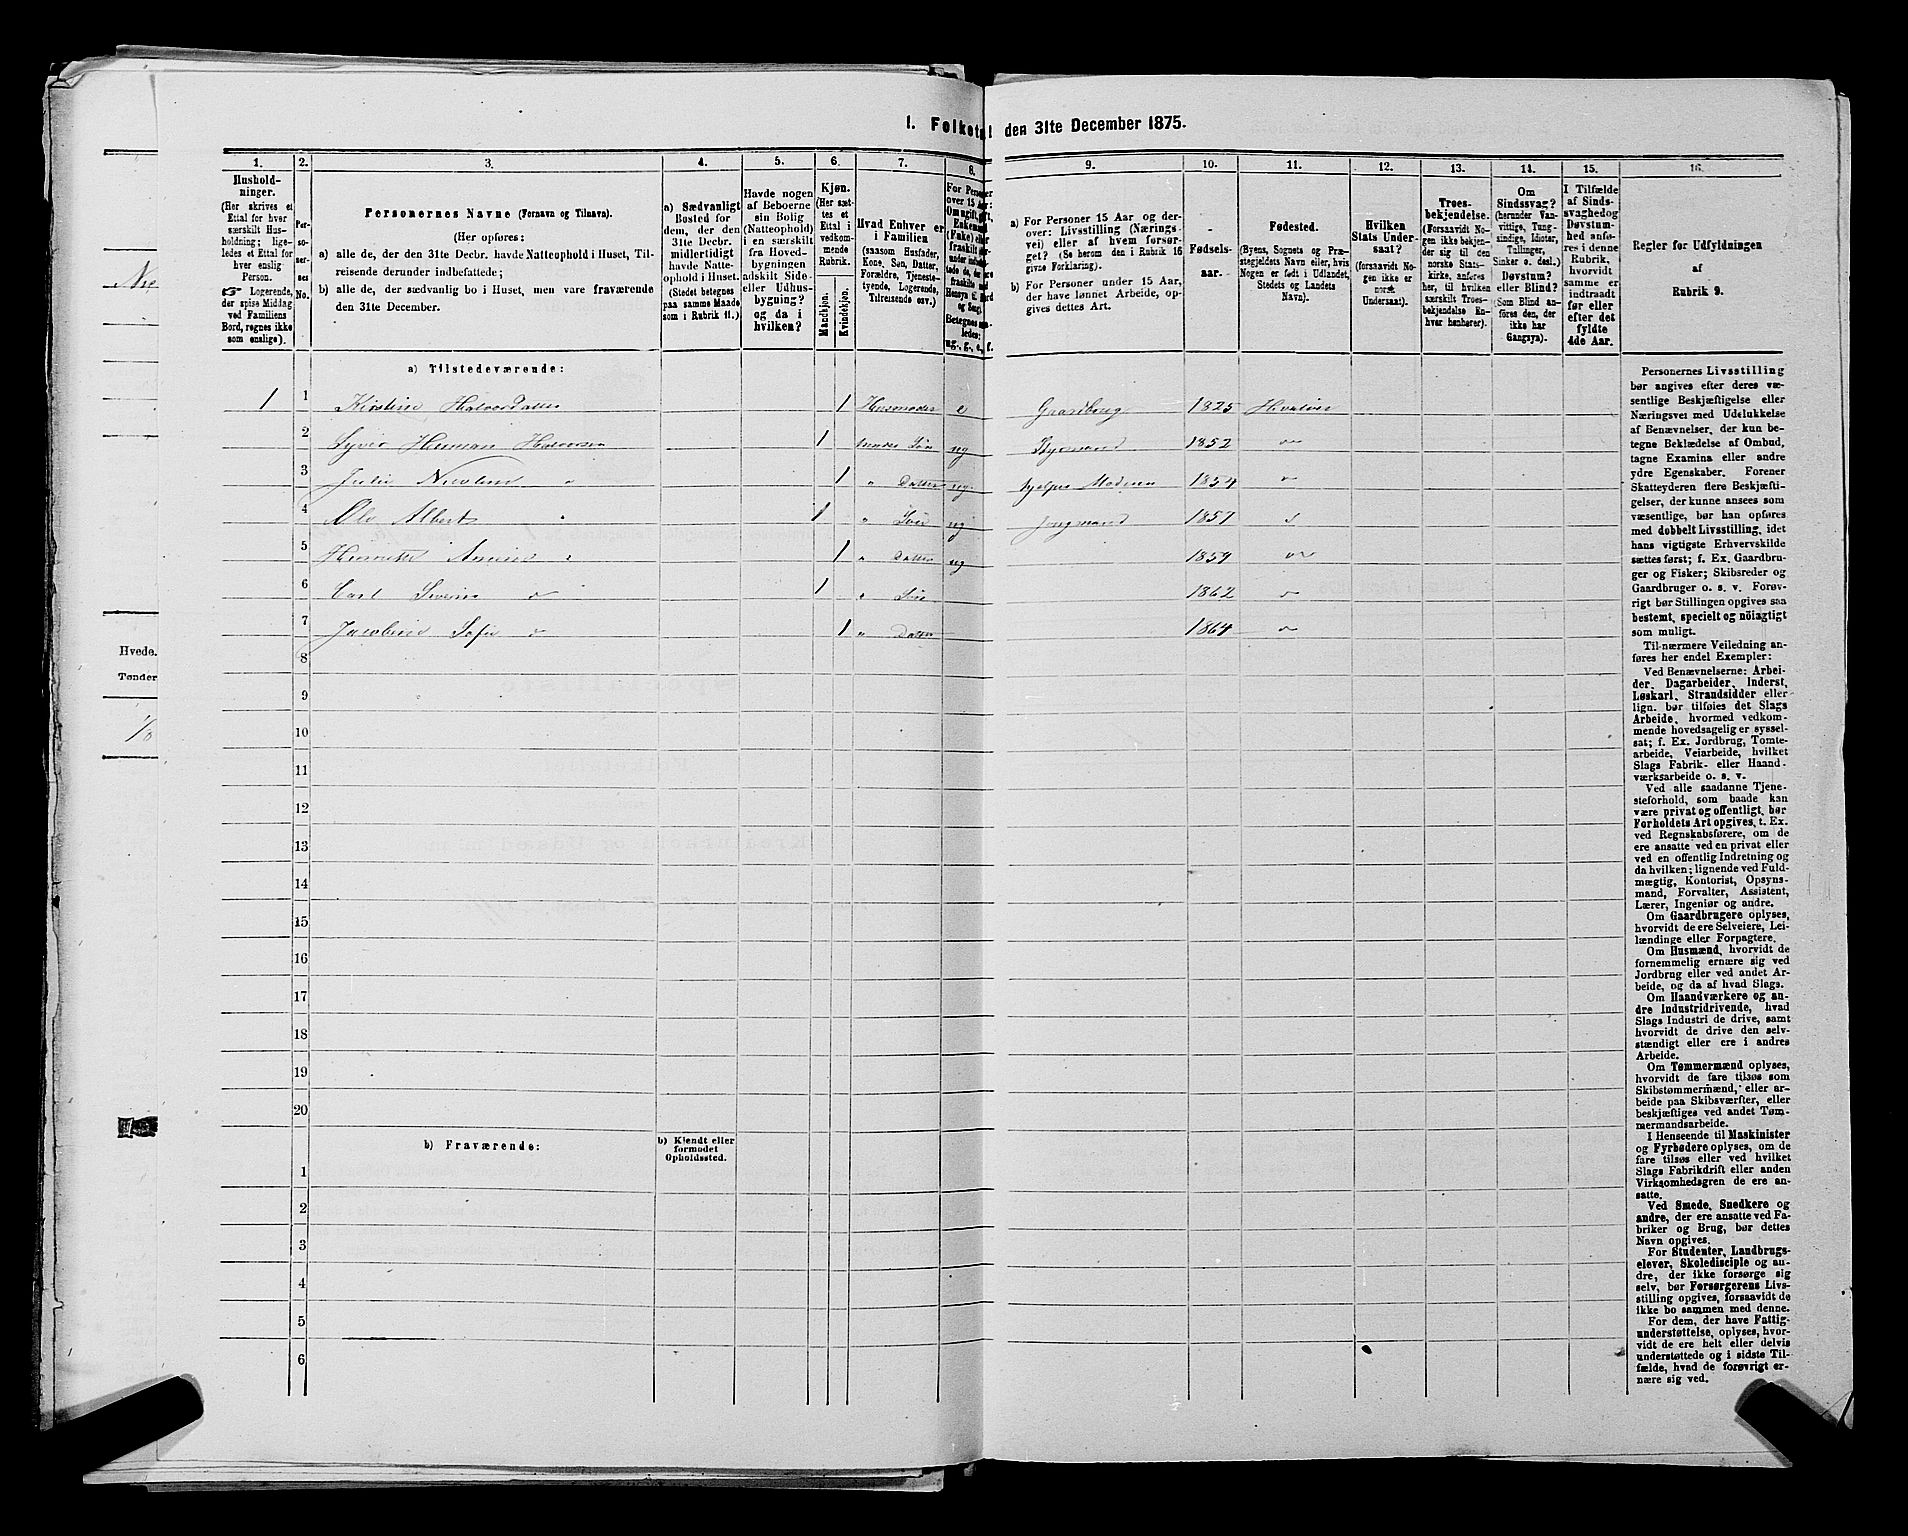 1. Folket den 31te December 1875.
1.
Hushold-
ninger.
(Her skrives et
Ettal for hver
særskilt Hus-
holdning; lige-
ledes et Ettal for
hver enslig
Person.
Logerende,
der spise Middag
ved Familiens
Bord, regnes ikke
som enslige).
2.
Per-
so-
ner-
nes
No.
3.
Personernes Navne (Fornavn og Tilnavn).
(Her opføres:
a) alle de, der den 31te Decbr. havde Natteophold i Huset, Til-
reisende derunder indbefattede;
b) alle de, der sædvanlig bo i Huset, men vare fraværende
den 31te December.
4.
a) Sædvanligt
Bosted for
dem, der den
31te Decbr.
midlertidigt
havde Natte-
ophold i Huset.
(Stedet betegnes
paa samme Maade
som i Rubrik 11.)
5.
Havde nogen
af Beboerne
sin Bolig
(Natteophold)
i en særskilt
fra Hoved-
bygningen
adskilt Side-
eller Udhus-
bygning?
og da i
hvilken?
6.
Kjøn.
(Her sæt-
tes et
Ettal i
vedkom-
mende
Rubrik.
Mandkjøn.
Kvindekjøn.
7.
Hvad Enhver er
i Familien
(saasom Husfader,
Kone, Søn, Datter,
Forældre, Tjeneste-
tyende, Logerende,
Tilreisende osv.)
8.
For Personer
over 15 Aar:
Om ugift, gift,
9.
a) For Personer 15 Aar og der-
over: Livsstilling (Nærings-
vei) eller af hvem forsør-
get? (Se herom den i Rubrik 16
givne Forklaring).
b) For Personer under 15 Aar,
der have lønnet Arbeide, op-
gives dettes Art.
10.
Fødsels-
aar.
11.
Fødested.
(Byens, Sognets og Præ-
stegjeldets Navn eller, hvis
Nogen er født i Udlandet,
Stedets og Landets
Navn).
12.
Hvilken
Stats Under-
saat?
(forsaavidt No-
gen ikke er
norsk
Undersaat).
13.
Troes-
bekjendelse.
(Forsaavidt No-
gen ikke bekjen-
der sig til den
norske Stats-
kirke, anføres
her, til hvilken
særskilt Troes-
bekjendelse En-
hver henhører).
14.
Om
Sindssvag?
(herunder Van-
vittige, Tung-
sindige, Idioter,
Tullinger,
Sinker o. desl.)
Døvstum?
eller Blind?
(Som Blind an-
føres den, der
ikke har
Gangsyn).
15.
I Tilfælde
af Sinds-
svaghed og
Døvstum-
hed anfø-
res i denne
Rubrik,
hvorvidt
samme er
indtraadt
før eller
efter det
fyldte
4de Aar.
16.
Regler for Udfyldningen
af
Rubrik 9.
a) Tilstedeværende:
1 1 Kirstine Halvordatter 1 Husmoder e Gaardbrug 1825 Hvaler
2 Syver Herman Halvorsen 1 Søn ug 1852 "
3 Julie Nicoline " 1 " Datter ug hjelper Moderen 1854 "
4 Ole Albert " 1 " Søn ug Jungmand 1857 "
5 " 1 " Datter ug 1859 "
6 Carl Severin " 1 " Søn 1862 "
7 Jacobine Sofie " 1 " Datter 1864 "
8
9
10
11
12
13
14
15
16
17
18
19
20
b) Fraværende:
b) Kjendt eller
formodet
Opholdssted.
1
2
3
4
5
6
Personernes Livsstilling
bør angives efter deres væ-
sentlige Beskjæftigelse eller
Næringsvei med Udelukkelse
af Benævnelser, der kun be-
tegne Beklædelse af Ombud,
tagne Examina eller andre
ydre Egenskaber. Forener
Skatteyderen flere Beskjæfti-
gelser, der kunne ansees som
væsentlige, bør han opføres
med dobbelt Livsstilling, idet
hans vigtigste Erhvervskilde
sættes først; f. Ex. Gaardbru-
ger og Fisker; Skibsreder og
Gaardbruger o. s. v. Forøv-
rigt bør Stillingen opgives saa
bestemt, specielt og nöiagtigt
som muligt.
Til nærmere Veiledning an-
føres her endel Exempler:
Ved Benævnelserne: Arbei-
der, Dagarbeider, Inderst,
Løskarl, Strandsidder eller
lign. bør tilføies det Slags
Arbeide, hvormed vedkom-
mende hovedsagelig er syssel-
sat; f. Ex. Jordbrug, Tomte-
arbeide, Veiarbeide, hvilket
Slags Fabrik- eller Haand-
værksarbeide o. s. v.
Ved alle saadanne Tjene-
steforhold, som baade kan
være privat og offentligt, bør
Forholdets Art opgives, t. Ex.
ved Regnskabsførere, om de
ere ansatte ved en privat eller
ved en offentlig Indretning og
da hvilken; lignende ved Fuld-
mægtig, Kontorist, Opsyns-
mand, Forvalter, Assistent,
Lærer, Ingeniør og andre.
Om Gaardbrugere oplyses,
hvorvidt de ere Selveiere, Lei-
lændinge eller Forpagtere.
Om Husmænd, hvorvidt de
fornemmelig ernære sig ved
Jordbrug eller ved andet Ar-
beide, og da af hvad Slags.
Om Haandværkere og an-
dre Industridrivende, hvad
Slags Industri de drive, samt
hvorvidt de drive den selv-
stændigt eller ere i andres
Arbeide.
Om Tømmermænd oplyses,
hvorvidt de fare tilsøs som
Skibstømmermænd, eller ar-
beide paa Skibsværfter, eller
beskjæftiges ved andet Tøm-
mermandsarbeide.
I Henseende til Maskinister
og Fyrbødere oplyses, om de
fare tilsøs eller ved hvilket
Slags Fabrikdrift eller anden
Virksomhedsgren de ere an-
satte.
Ved Smede, Snedkere og
andre, der ere ansatte ved Fa-
briker og Brug, bør dettes
Navn opgives.
For Studenter, Landbrugs-
elever, Skoledisciple og an-
dre, der ikke forsørge sig
selv, bør Forsørgerens Livs-
stilling opgives, forsaavidt de
ikke bo sammen med denne.
For dem, der have Fattig-
understøttelse, oplyses, hvor-
vidt de ere helt eller delvis
understøttede og i sidste Til-
fælde, hvad de forøvrigt er-
nære sig ved.
Hvede.
Tønder
1/8